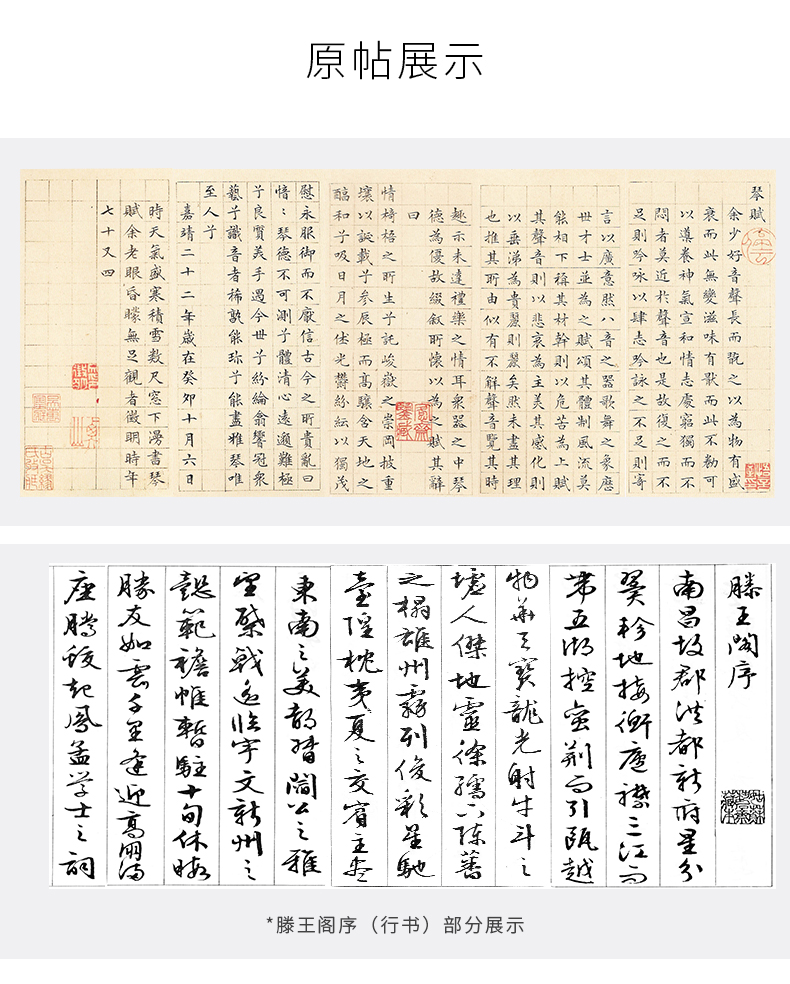 原帖展示
琴賦
余少好音聲長而翫之以為物有盛
衰而此無變滋味有猒而此不勌可
以導養神氣宣和情志處窮獨而不
悶者莫近於聲音也是故復之而不
足則吟咏以肆志吟詠之不足則寄
言以廣意然八音之器歌舞之象歷
世才士並為之賦頌其體制風流莫
能相下稱其材幹則以危苦為上賦
其聲音則以悲哀為主美其感化則
以垂涕為貴麗則麗矣然未盡其理
也推其所由似有不解聲音覽其時
趣示未達禮樂之情耳衆器之中琴
德為優故綴叙所懷以為之賦其辭
曰
情椅梧之所生兮託峻嶽之崇岡披重
壤以誕載兮參辰極而高驤含天地之
醕和兮吸日月之休光鬱紛紜以獨茂
慰永服御而不厭信古今之所貴亂曰
愔〻琴德不可測兮體清心遠邈難極
兮良質美手遇今世兮紛綸翕響冠衆
藝兮識音者稀孰能珍兮能盡雅琴唯
至人兮
嘉靖二十二年歲在癸卯十月六日
時天氣盛寒積雪数尺窓下漫書琴
賦余老眼昏矇無足觀者徵明時年
七十又四
滕王閣序
南昌故郡洪都新府星分
翼軫地接衡廬襟三江而
帶五湖控蛮荆而引甌越
物華天寶龍光射牛斗之
墟人傑地靈徐孺下陳蕃
之榻雄州霧列俊彩星馳
臺隍枕夷夏之交賓主盡
東南之美都督閻公之雅
望棨戟遥临宇文新州之
懿範襜帷暫駐十旬休暇
勝友如雲千里逢迎高朋滿
座騰蛟起鳳孟学士之詞
*滕王阁序（行书）部分展示